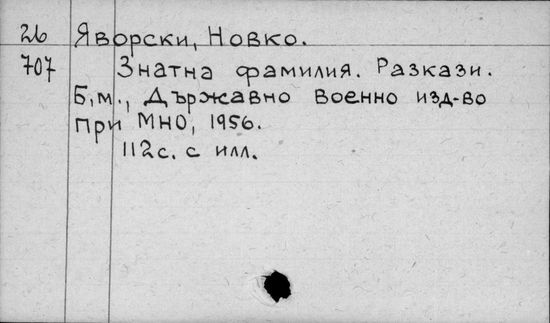 26 Яворски, Новко.
707 Знатна фамилия. Разкази.
Б.м., Държавно Военно изд-во
при МНО, 1956.
112 с. с илл.